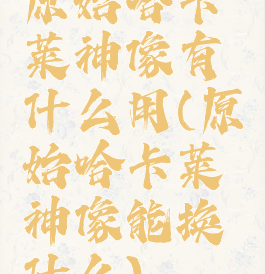 原始哈卡
莱神像有
什么用(原
始哈卡莱
神像能换
什么)